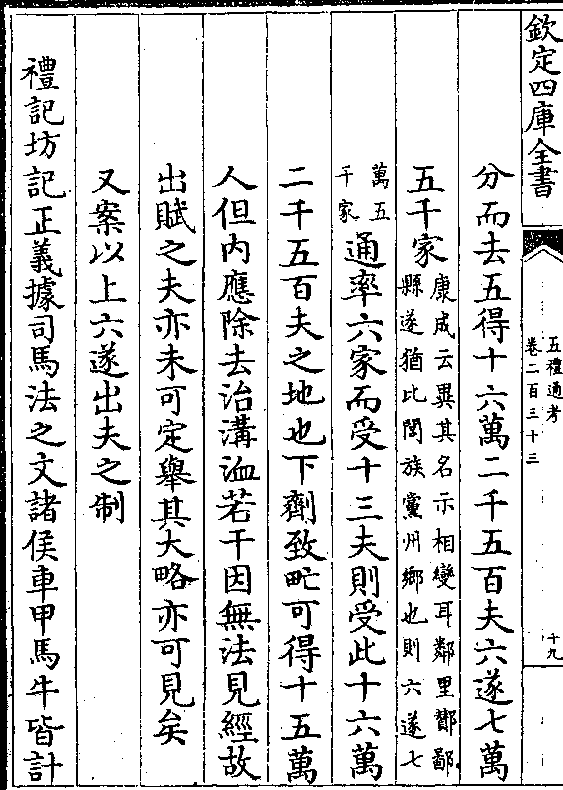 欽定四庫全書
五禮通考
卷二百三十三
十九
分而去五得十六萬二千五百夫六遂七萬
五千家
康成云異其名示相變耳鄰里酇鄙
縣遂猶比閭族黨州鄉也則六遂七
萬五
千家
通率六家而受十三夫則受此十六萬
二千五百夫之地也下劑致甿可得十五萬
人但內應除去治溝洫若干因無法見經故
出賦之夫亦未可定舉其大略亦可見矣
又案以上六遂出夫之制
禮記坊記正義據司馬法之文諸侯車甲馬牛皆計